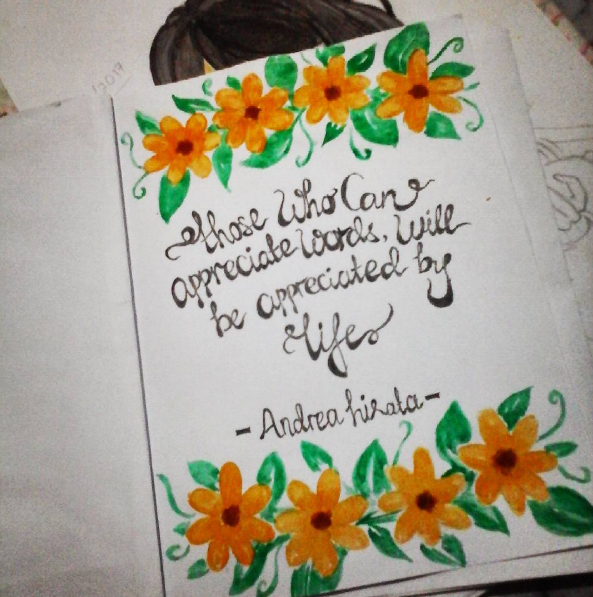 /2017
Those Who Can
appreciate Words, Will
be appreciated by
life
- Andrea hirata -